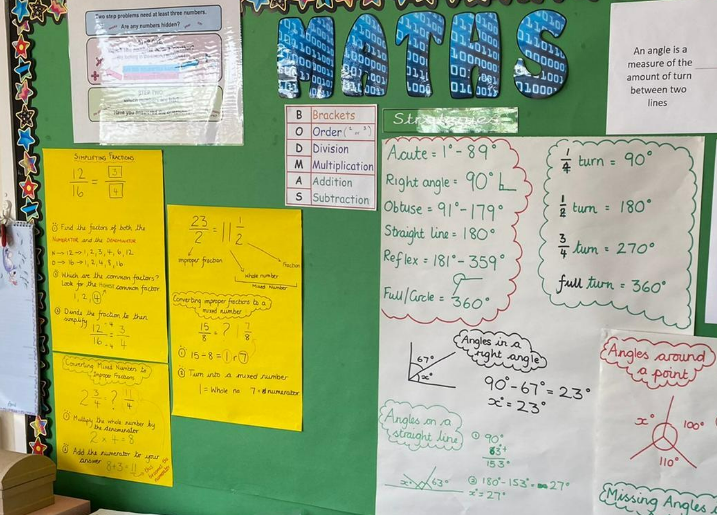 Two step problems need at least three numbers.
Are any numbers hidden?
STEP TWO
MATHS
An angle is a
measure of the
amount of turn
between two
lines
B Brackets
O Order (² or ³)
D Division
M Multiplication
A Addition
S Subtraction
Strategies
SIMPLIFYING FRACTIONS
12/16 = 3/4
① Find the factors of both the
NUMERATOR and the DENOMINATOR
N → 12 → 1, 2, 3, 4, 6, 12
D → 16 → 1, 2, 4, 8, 16
② Which are the common factors?
Look for the HIGHEST common factor
1, 2, ④
③ Divide the fraction to then
simplify
12 ÷ 4 = 3
16 ÷ 4 4
Converting Mixed Numbers to
Improper Fractions
2 3/4 = ? 11/4
① Multiply the whole number by
the denominator
2 × 4 = 8
② Add the numerator to your
answer
8 + 3 = 11
23/2 = 11 1/2
improper fraction
whole number
fraction
Mixed Number
Converting improper fractions to a
mixed number
15/8 = ? 1 7/8
① 15 - 8 = 1 r 7
② Turn into a mixed number
1 = Whole no 7 = numerator
Acute = 1° - 89°
Right angle = 90°
Obtuse = 91° - 179°
Straight line = 180°
Reflex = 181° - 359°
Full/Circle = 360°
1/4 turn = 90°
1/2 turn = 180°
3/4 turn = 270°
full turn = 360°
Angles in a
right angle
67°
x°
90° - 67° = 23°
x° = 23°
Angles on a
straight line
63°
① 90°
63°+
153°
② 180° - 153° = 27°
x° = 27°
Angles around
a point
x°
100°
110°
Missing Angles